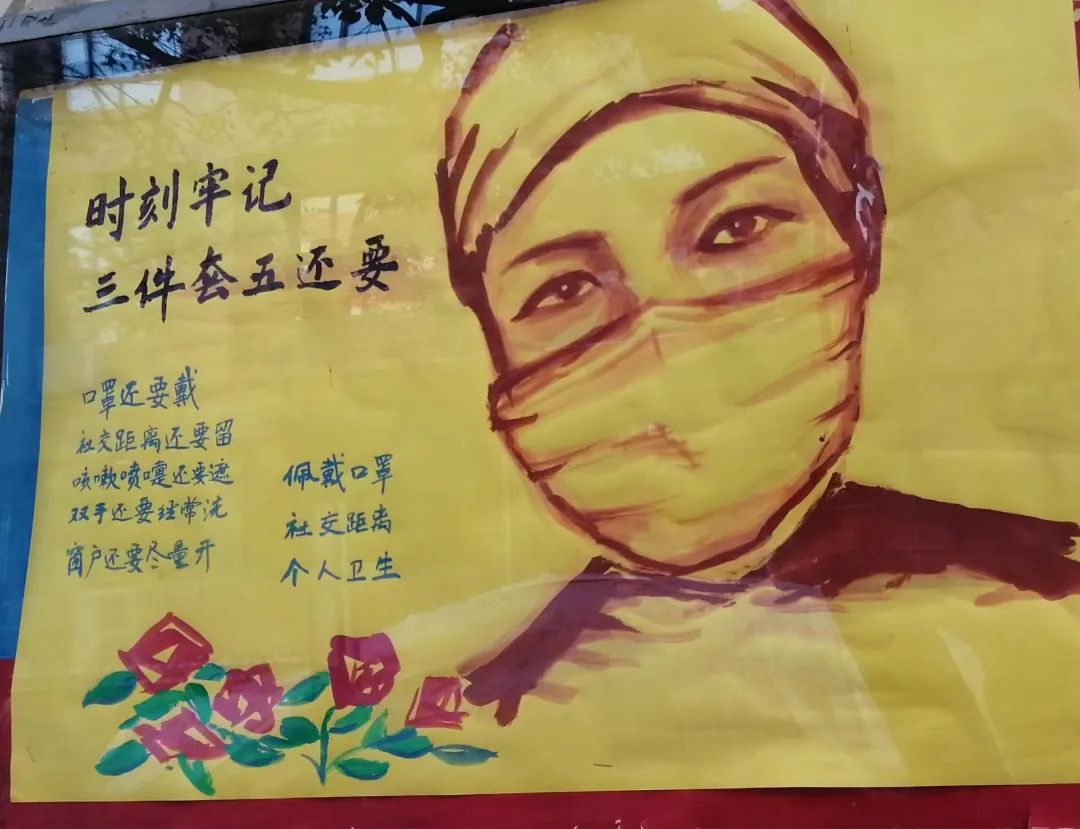 时刻牢记
三件套五还要
口罩还要戴
社交距离还要留
咳嗽喷嚏还要遮
双手还要经常洗
窗户还要尽量开
佩戴口罩
社交距离
个人卫生